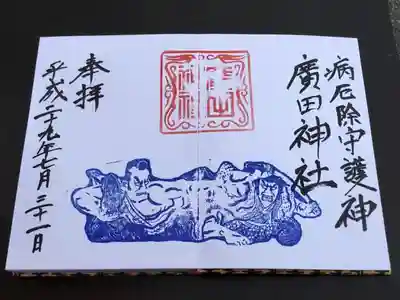 病厄除守護神
廣田神社
奉拝
平成二十九年七月二十一日